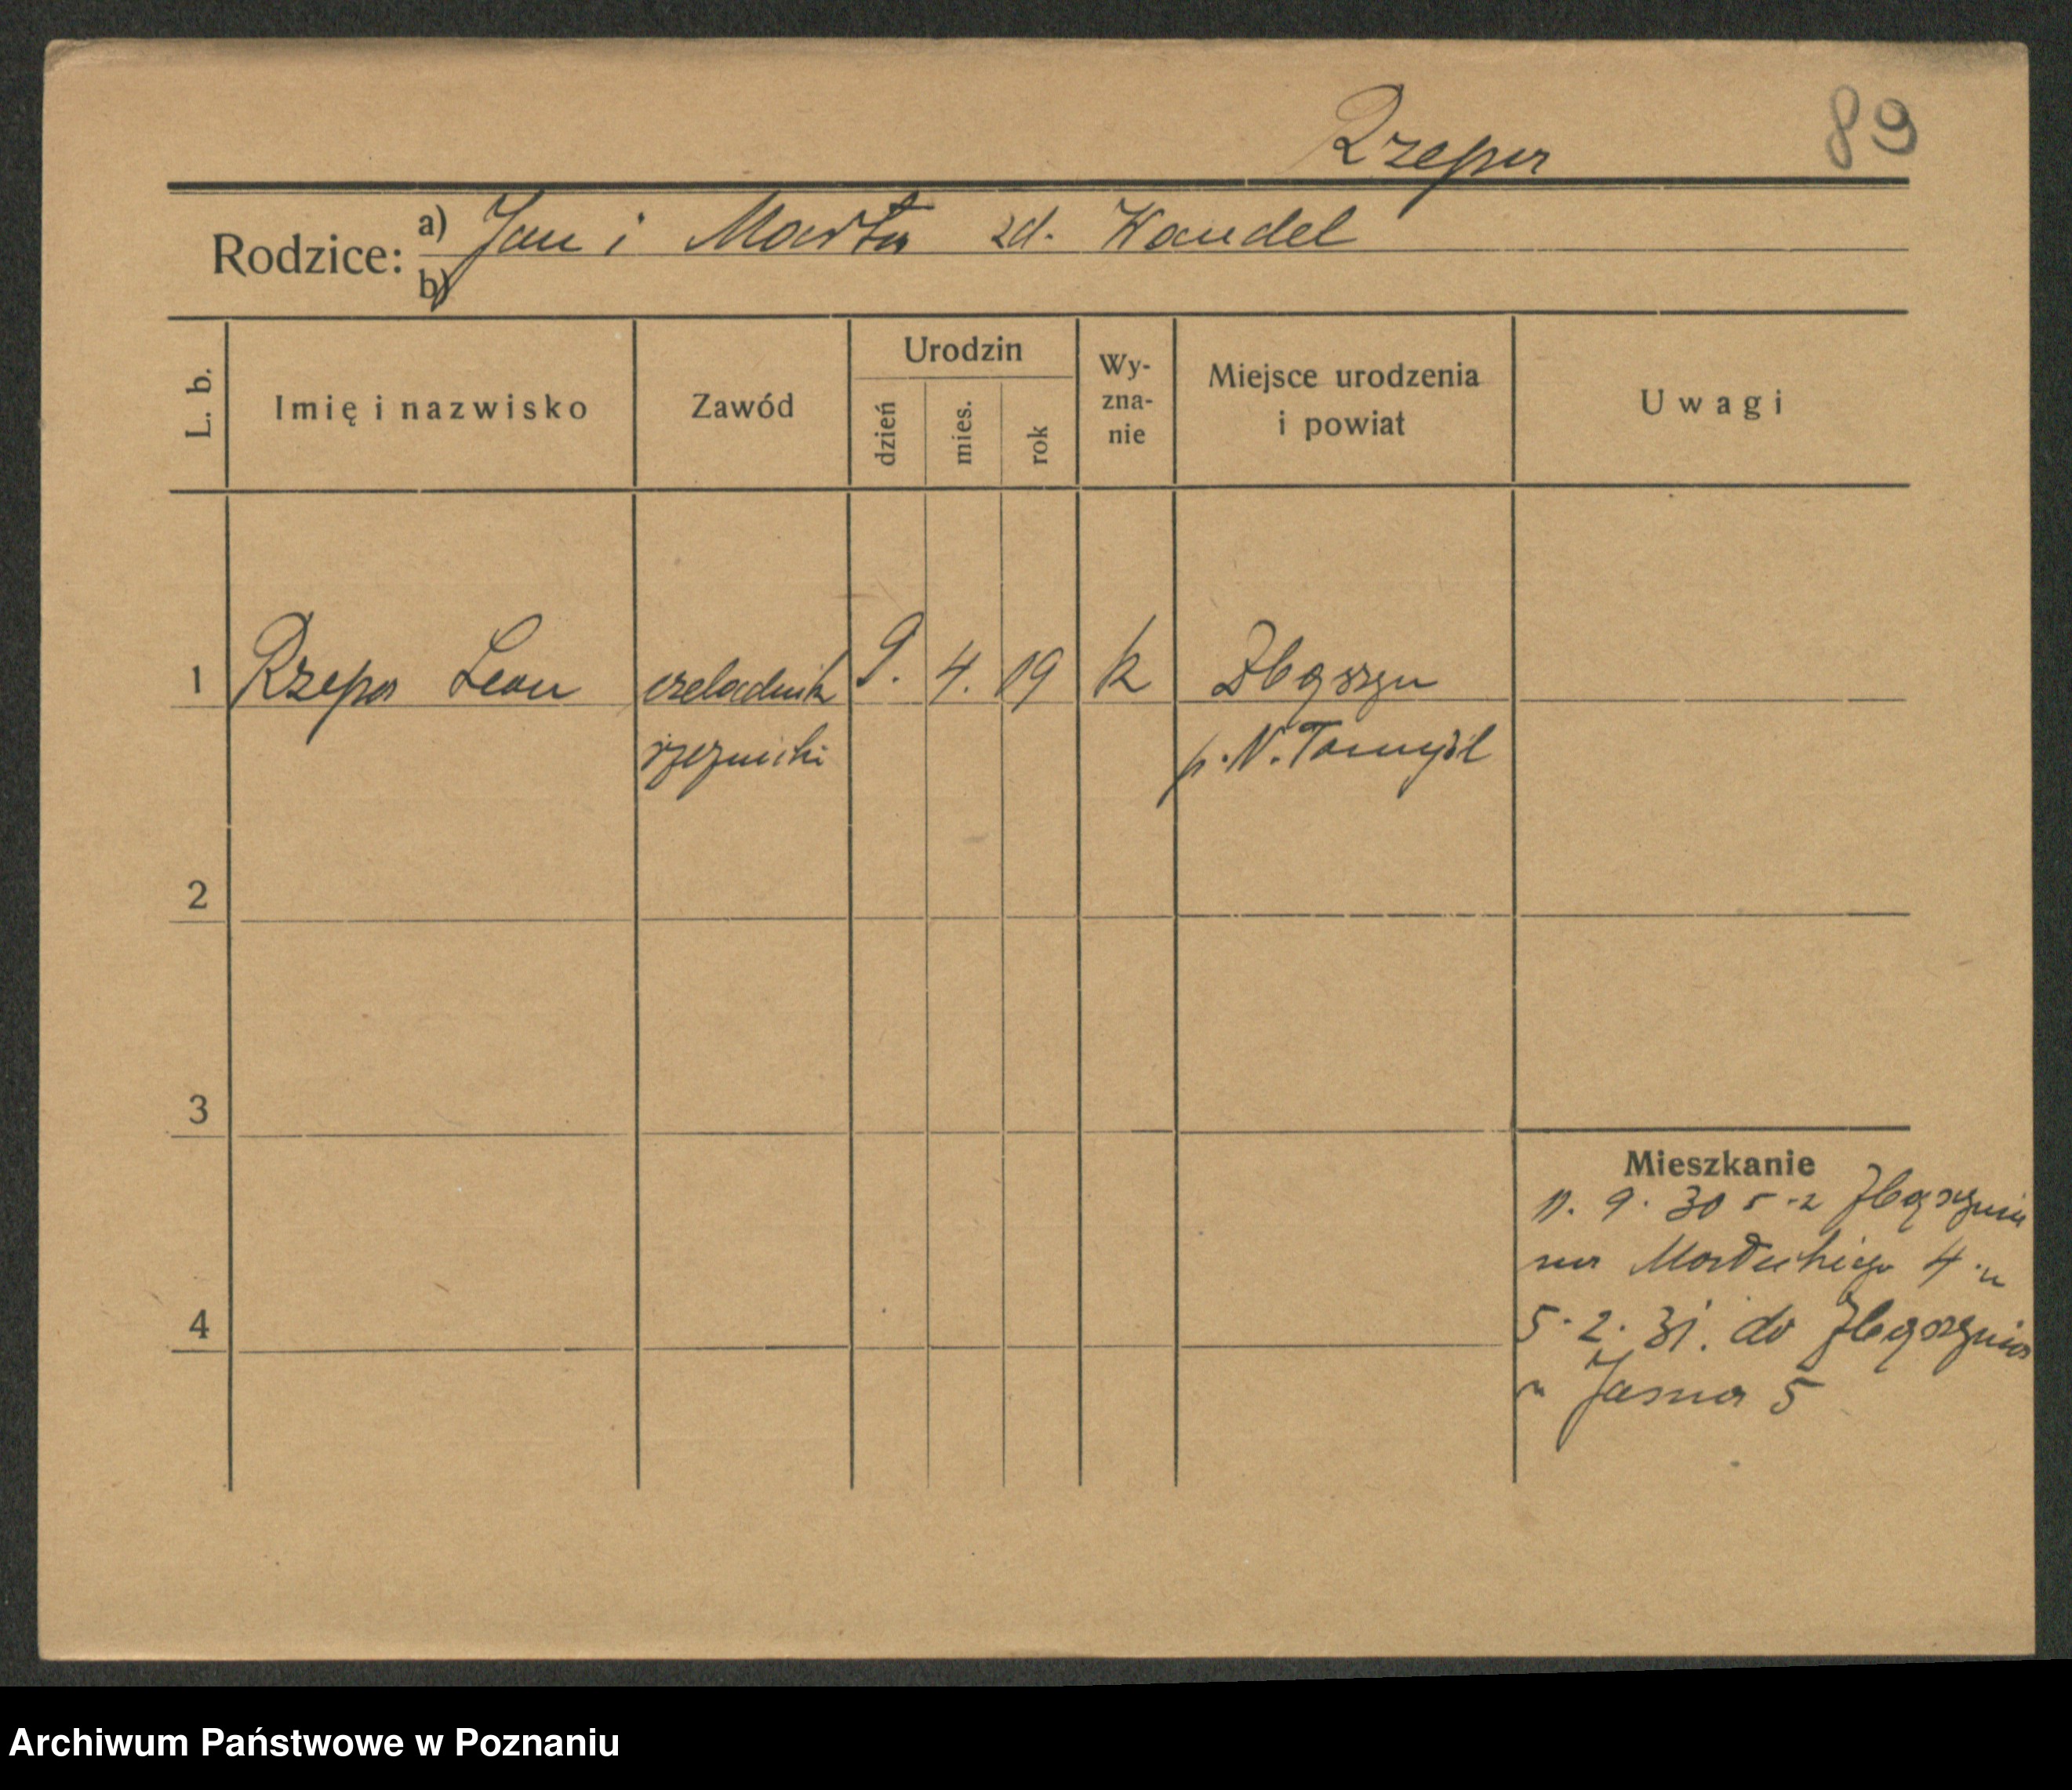 Rzepa 89
Rodzice: a) Jan i Marta zd. Kandel
b)
L. b. Imię i nazwisko Zawód Urodzin dzień mies. rok Wy-zna-nie Miejsce urodzenia i powiat Uwagi
1 Rzepa Leon czeladnik 9. 4. 19 k Zbąszyn
rzeźnicki p. N. Tomyśl
2
3
Mieszkanie
11. 9. 30 z Zbąszynia
na 4
4
5. 2. 31. do Zbąszynia
Jasna 5
Archiwum Państwowe w Poznaniu